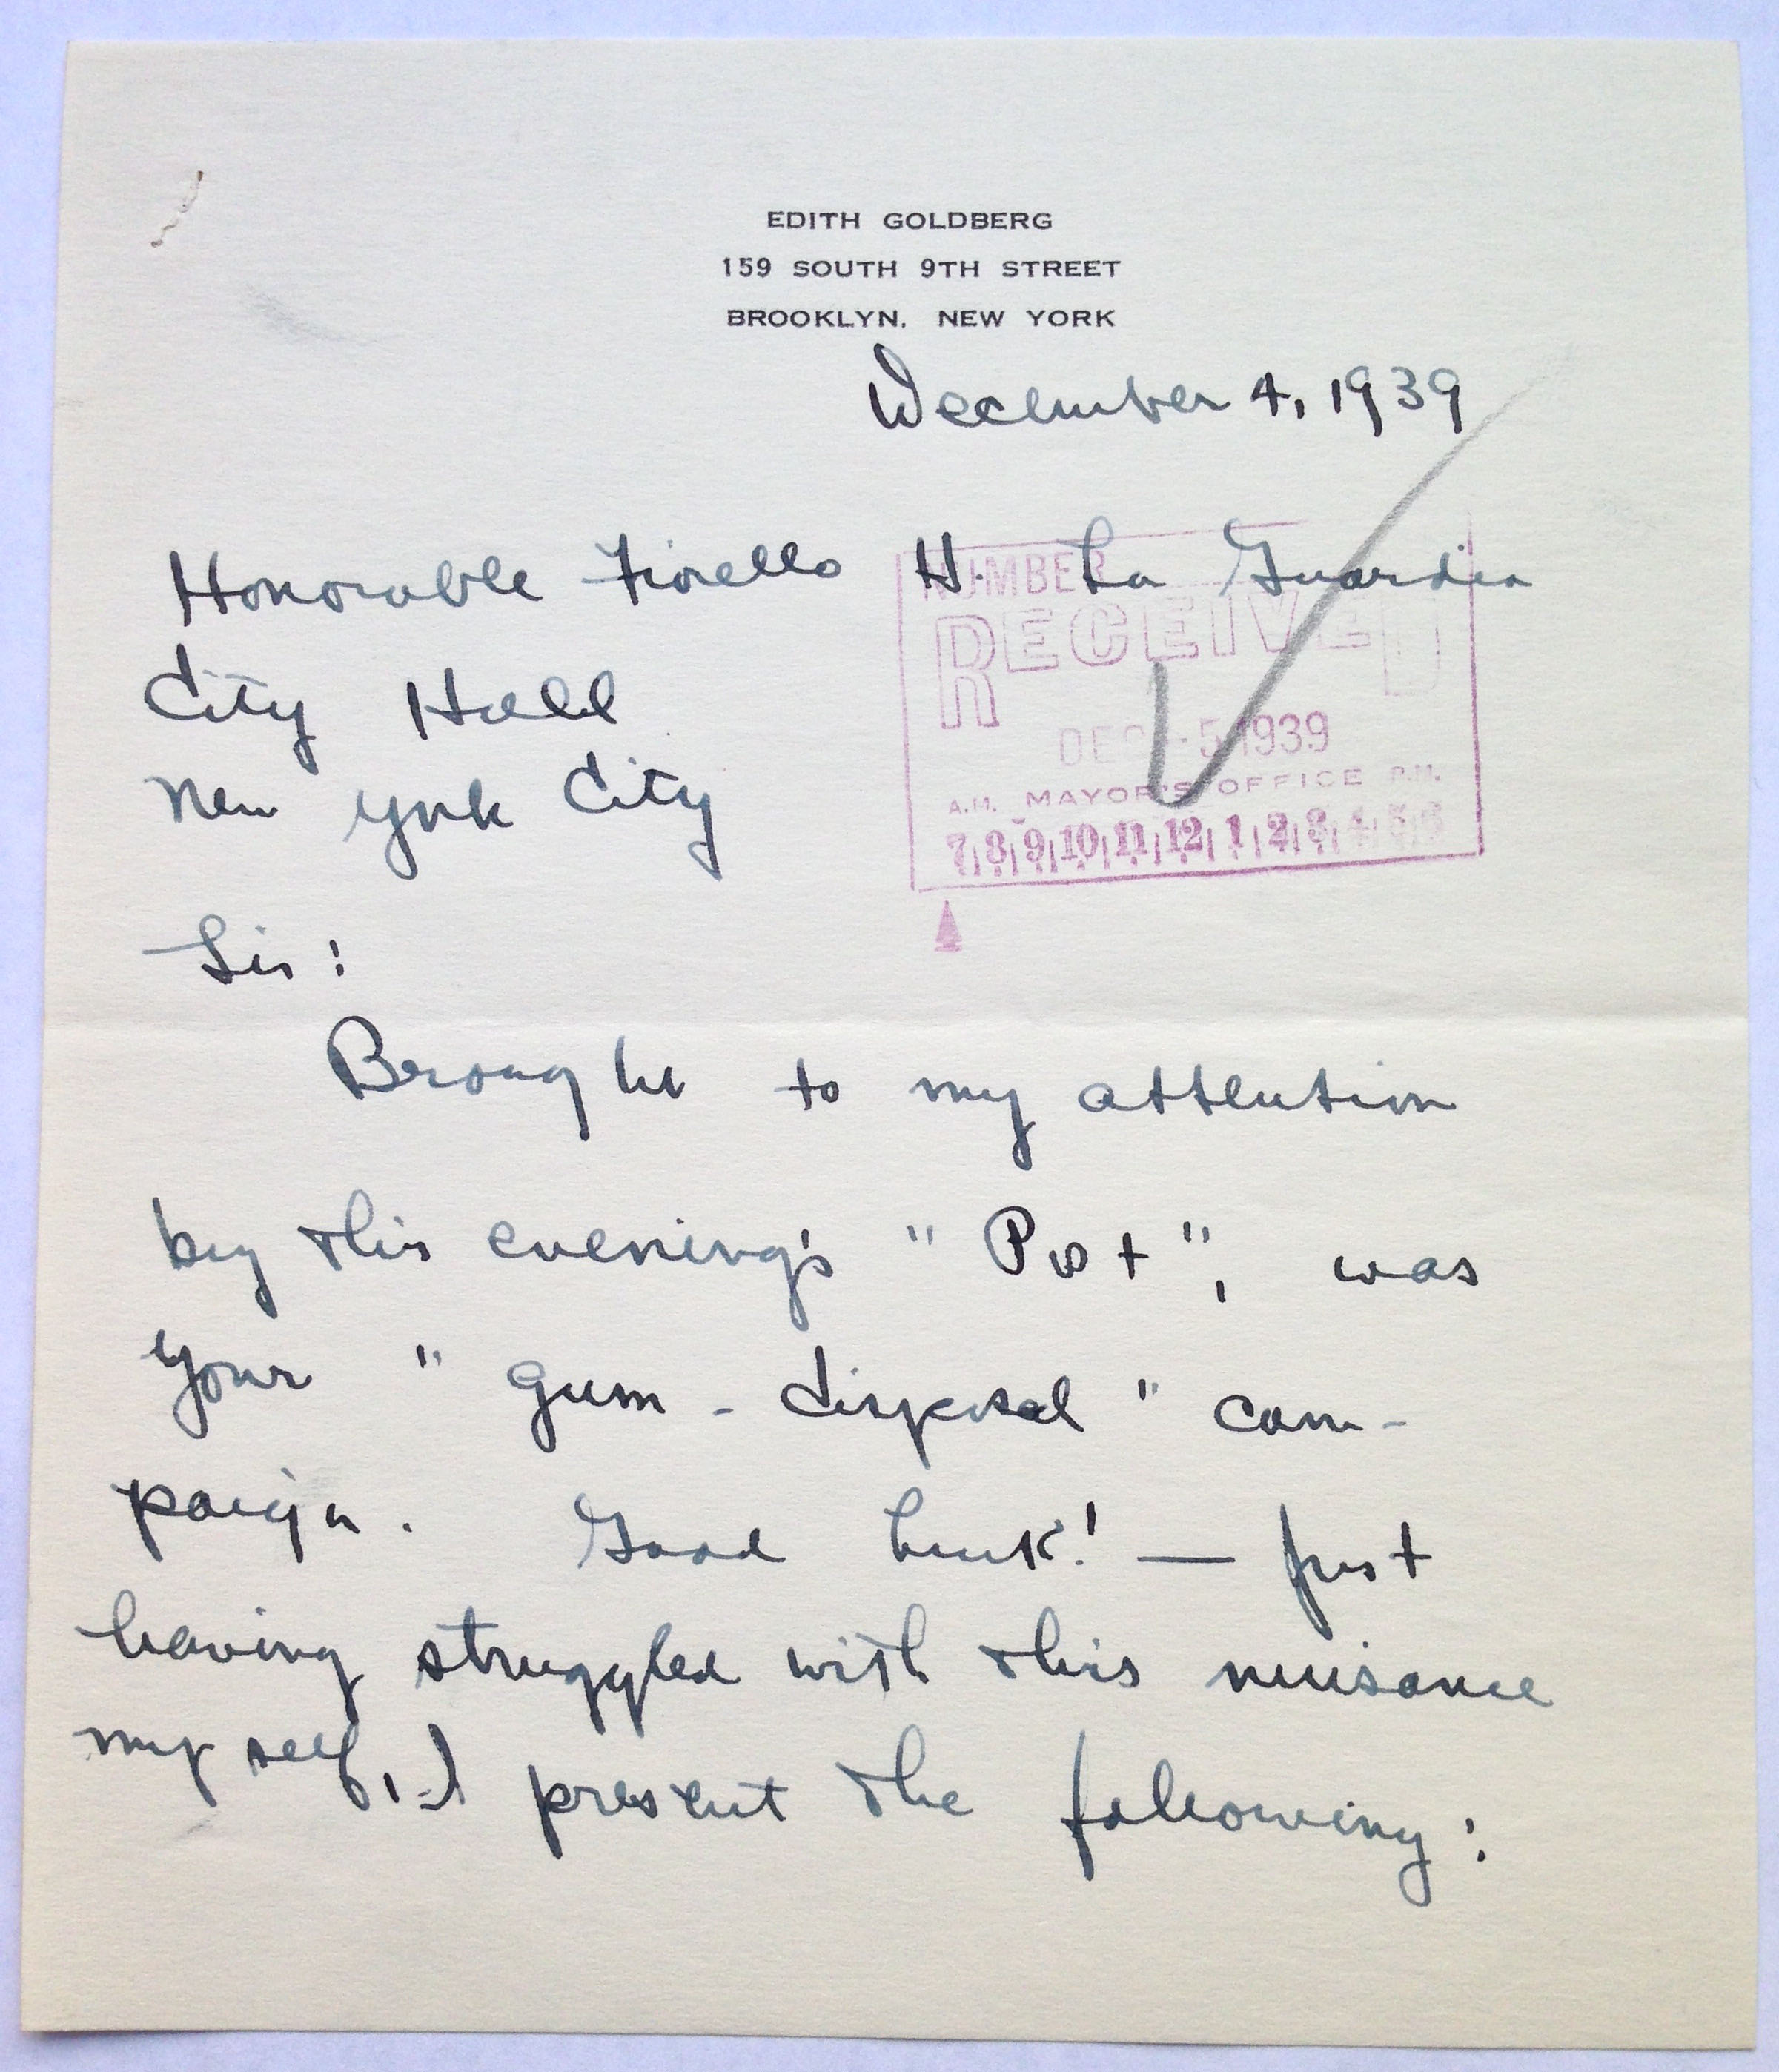 EDITH GOLDBERG
159 SOUTH 9TH STREET
BROOKLYN, NEW YORK
December 4, 1939
Honorable Fiorello H. La Guardia
City Hall
New York City
NUMBER
RECEIVED
DEC -5 1939
A.M. MAYOR'S OFFICE P.M.
7 8 9 10 11 12 1 2 3 4 5 6
Sir:
Brought to my attention
by this evening's "Post", was
your "gum-disposal" cam-
paign. Good luck! — Just
having struggled with this nuisance
myself, I present the following: